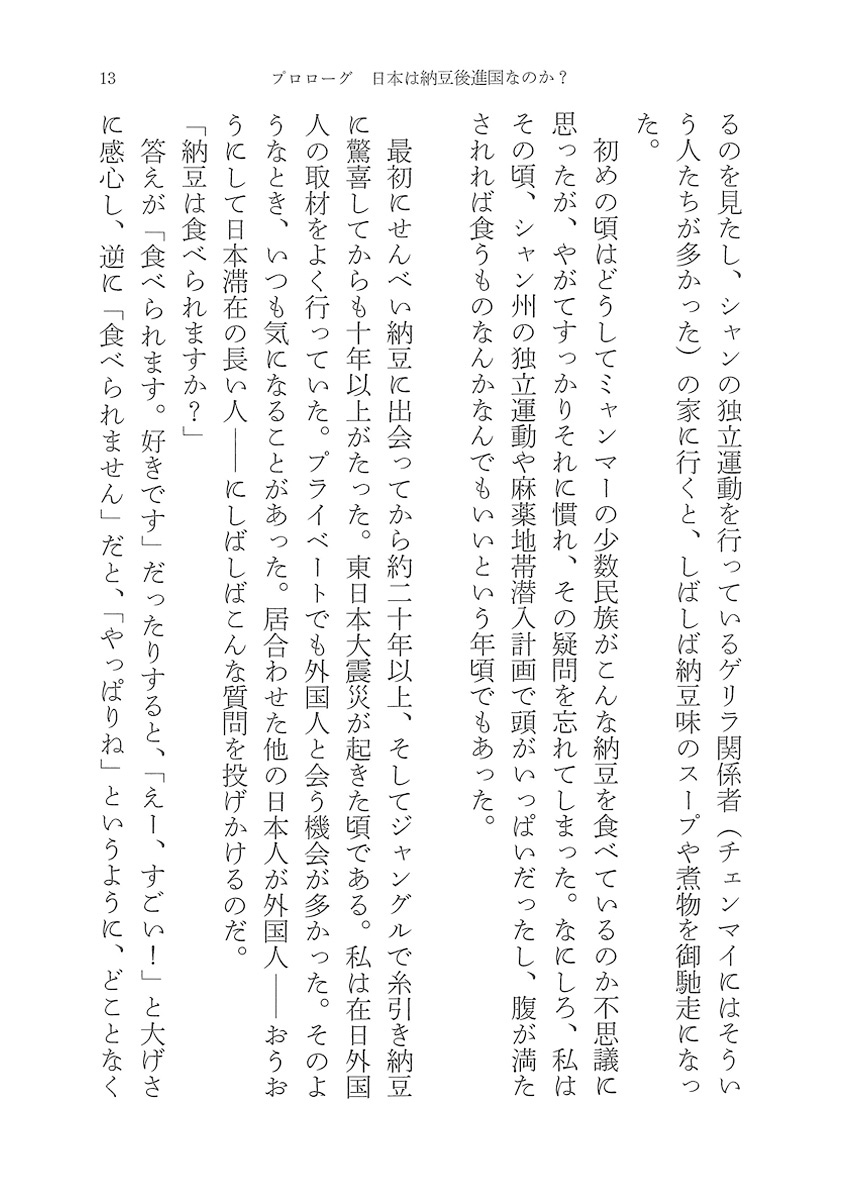 13
プロローグ　日本は納豆後進国なのか？
るのを見たし、シャンの独立運動を行っているゲリラ関係者（チェンマイにはそうい
う人たちが多かった）の家に行くと、しばしば納豆味のスープや煮物を御馳走になっ
た。
　初めの頃はどうしてミャンマーの少数民族がこんな納豆を食べているのか不思議に
思ったが、やがてすっかりそれに慣れ、その疑問を忘れてしまった。なにしろ、私は
その頃、シャン州の独立運動や麻薬地帯潜入計画で頭がいっぱいだったし、腹が満た
されれば食うものなんかなんでもいいという年頃でもあった。
　最初にせんべい納豆に出会ってから約二十年以上、そしてジャングルで糸引き納豆
に驚喜してからも十年以上がたった。東日本大震災が起きた頃である。私は在日外国
人の取材をよく行っていた。プライベートでも外国人と会う機会が多かった。そのよ
うなとき、いつも気になることがあった。居合わせた他の日本人が外国人――おうお
うにして日本滞在の長い人――にしばしばこんな質問を投げかけるのだ。
「納豆は食べられますか？」
　答えが「食べられます。好きです」だったりすると、「えー、すごい！」と大げさ
に感心し、逆に「食べられません」だと、「やっぱりね」というように、どことなく